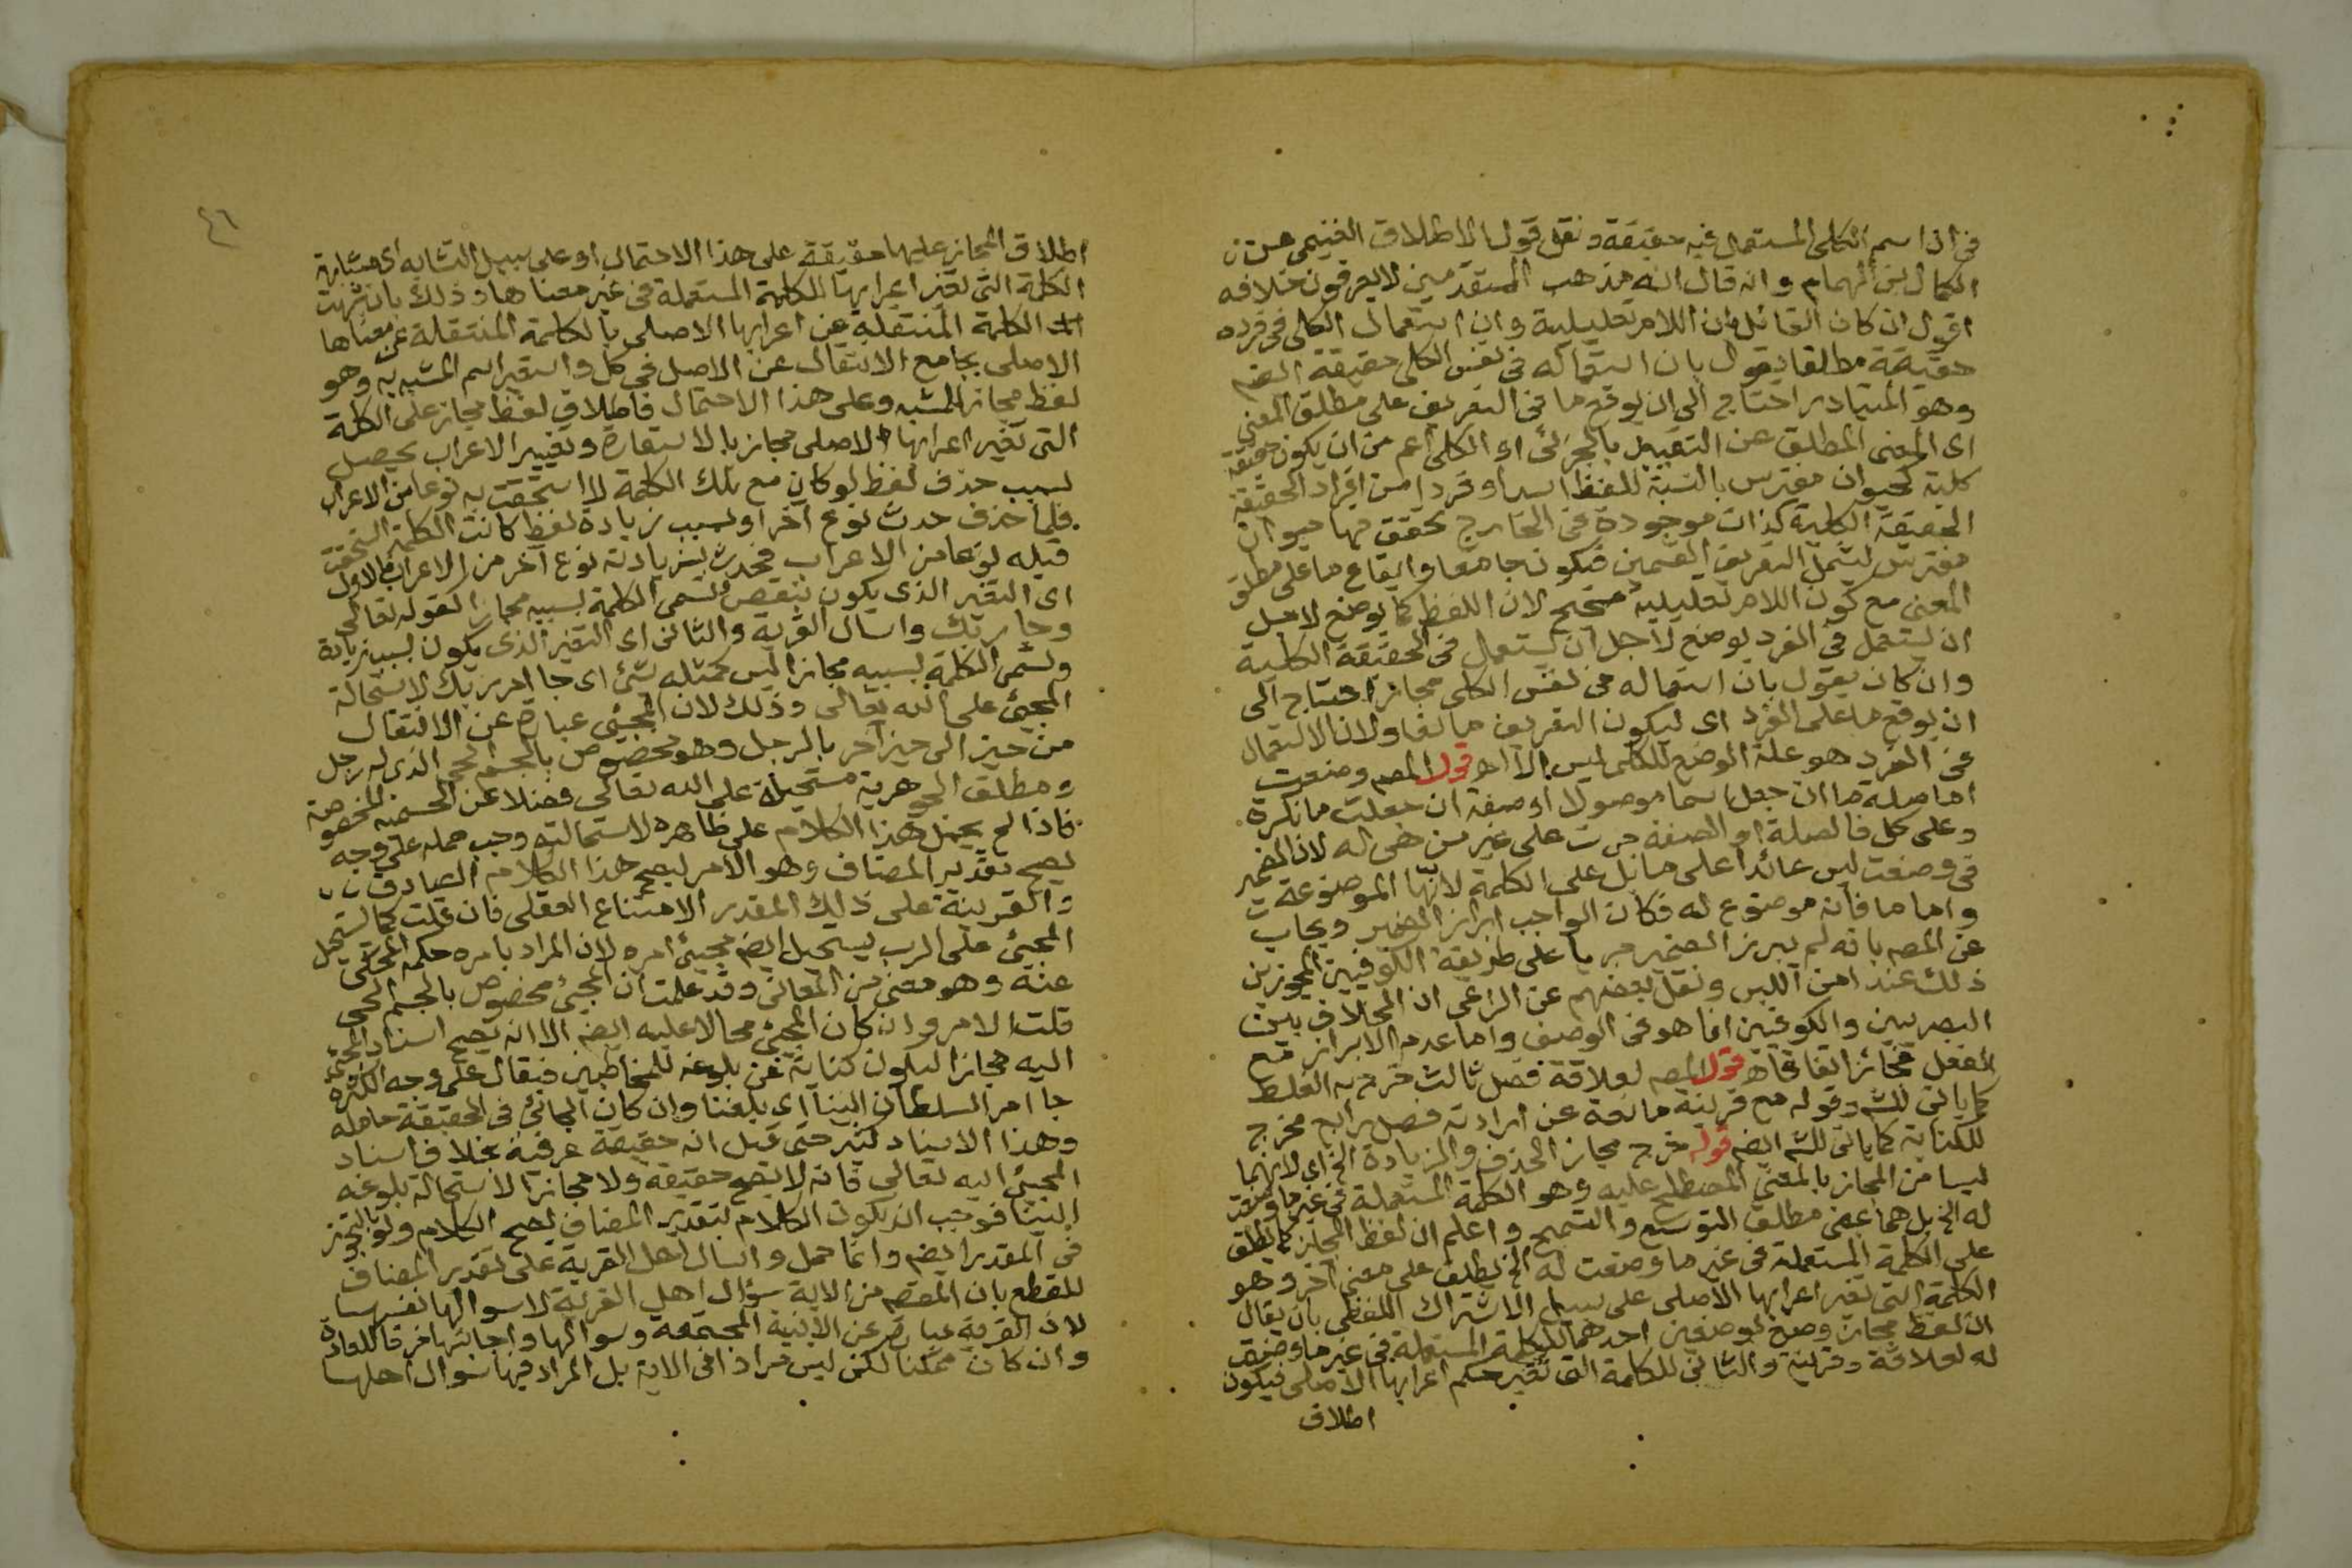 في ان اسم الكلي المستعمل فيه حقيقة ونقل قول الاطلاق الغنيمي عن
الكمال ابن الهمام وانه قال انه مذهب المتقدمين لا يعرفون خلافه
اقول ان كان القائل بان اللام تعليلية وان استعمال الكلي في فرده
حقيقة مطلقا يقول بان استعماله في نفس الكلي حقيقة ايضه
وهو المتبادر احتاج الى ان يوقع ما في التعريف على مطلق المعنى
اى المعنى المطلق عن التقييد بالجزئى او الكلى اعم من ان يكون حقيقة
كلية كحيوان مفترس بالنسبة للفظ اسد او فردا من افراد الحقيقة
الحقيقة الكلية كذات موجودة في الخارج تحقق فيها حيوان
مفترس ليشمل التعريف القسمين فيكون جامعا وايقاع ما على مطلق
المعنى مع كون اللام تعليلية صحيح لان اللفظ كما يوضع لاجل
ان يستعمل في الفرد يوضع لاجل ان يستعمل في الحقيقة الكلية
وان كان يقول بان استعماله في نفس الكلى مجازا احتاج الى
ان يوقع ما على الفرد اى ليكون التعريف مانعا ولان الاستعمال
في الفرد هو علة الوضع للكلى ليس الا اهـ قول المصه وضعت
اما صلة ما ان جعل اسما موصولا او صفة ان جعلت ما نكرة
وعلى كل فالصلة او الصفة جرت على غير من هى له لان الضمير
في وضعت ليس عائدا على ما بل على الكلمة لانها الموضوعة
واما ما فانه موضوع له فكان الواجب ابراز الضمير ويجاب
عن المصه بانه لم يبرز الضمير جريا على طريقة الكوفيين المجوزين
ذلك عند امن اللبس ونقل بعضهم عن الراعى ان الخلاف بين
البصريين والكوفيين انما هو في الوصف واما عدم الابراز مع
الفعل فجائز اتفاقا اهـ قول المصه لعلاقة فصل ثالث خرج به الغلط
كما ياتى للشه وقوله مع قرينة مانعة عن ارادته فصل رابع مخرج
للكناية كما ياتى للشه ايضه قوله خرج مجاز الحذف والزيادة الخ اى لانهما
ليسا من المجاز بالمعنى المصطلح عليه وهو الكلمة المستعملة في غير ما وضعت
له الخ بل هما بمعنى مطلق التوسع والتسمح واعلم ان لفظ المجاز كما يطلق
على الكلمة المستعملة في غير ما وضعت له الخ يطلق على معنى آخر وهو
الكلمة التى تغير اعرابها الاصلى على سبيل الاشتراك اللفظى بان يقال
ان لفظ مجاز وضع بوضعين احدهما للكلمة المستعملة في غير ما وضعت
له لعلاقة وقرينة والثانى للكلمة التى تغير حكم اعرابها الاصلى فيكون
اطلاق
٤٦
اطلاق المجاز عليها حقيقة على هذا الاحتمال او على سبيل التشابه اى مشابهة
الكلمة التى تغير اعرابها للكلمة المستعملة في غير معناها وذلك بان شبهت
الكلمة المنتقلة عن اعرابها الاصلى بالكلمة المنتقلة عن معناها
الاصلى بجامع الانتقال عن الاصل في كل واستعير اسم المشبه به وهو
لفظ مجاز للمشبه وعلى هذا الاحتمال فاطلاق لفظ مجاز على الكلمة
التى تغير اعرابها الاصلى مجاز بالاستعارة وتغيير الاعراب يحصل
بسبب حذف لفظ لو كان مع تلك الكلمة لاستحقت به نوعا من الاعراب
فلما حذف حدث نوع آخر او بسبب زيادة لفظ كانت الكلمة استحقت
قبله نوعا من الاعراب فحدث بزيادته نوع آخر من الاعراب فالاول
اى التغير الذى يكون بنقص وتسمى الكلمة بسببه مجازا كقوله تعالى
وجا ربك واسال القرية والثانى اى التغير الذى يكون بسبب زيادة
وتسمى الكلمة بسببه مجازا ليس كمثله شئ اى جا امر ربك لاستحالة
المجيئ على الله تعالى وذلك لان المجيئ عبارة عن الانتقال
من حيز الى حيز آخر بالرجل وهو مخصوص بالجسم الحى الذى له رجل
ومطلق الجوهرية مستحيلة على الله تعالى فضلا عن الجسمية المخصوصة
فاذا لم يحمل هذا الكلام على ظاهره لاستحالته وجب حمله على وجه
يصح بتقدير المضاف وهو الامر ليصح هذا الكلام الصادق
والقرينة على ذلك المقدر الامتناع العقلى فان قلت كما يستحيل
المجيئ على الرب يستحيل ايضه مجيئ امره لان المراد بامره حكمه
عنه وهو معنى من المعانى وقد علمت ان المجيئ مخصوص بالجسم الحى
قلت الامر وان كان المجيئ محالا عليه ايضه الا انه يصح اسناد المجيئ
اليه مجازا ليكون كناية عن بلوغه للمخاطبين فيقال على وجه الكثرة
جا امر السلطان الينا اى بلغنا وان كان الجائى في الحقيقة حامله
وهذا الاسناد كثير حتى قيل انه حقيقة عرفية بخلاف اسناد
المجيئ اليه تعالى فانه لا يصح حقيقة ولا مجازا لاستحالة بلوغه
الينا فوجب ان يكون الكلام بتقدير المضاف ليصح الكلام ولو بالتجوز
في المقدر ايضه وانما حمل واسال اهل القرية على تقدير المضاف
للقطع بان المقصه من الاية سؤال اهل القرية لا سوالها نفسها
لان القرية عبارة عن الابنية المجتمعة وسوالها واجابتها خرقا للعادة
وان كان ممكنا لكن ليس مرادا في الاية بل المراد فيها سوال اهلها